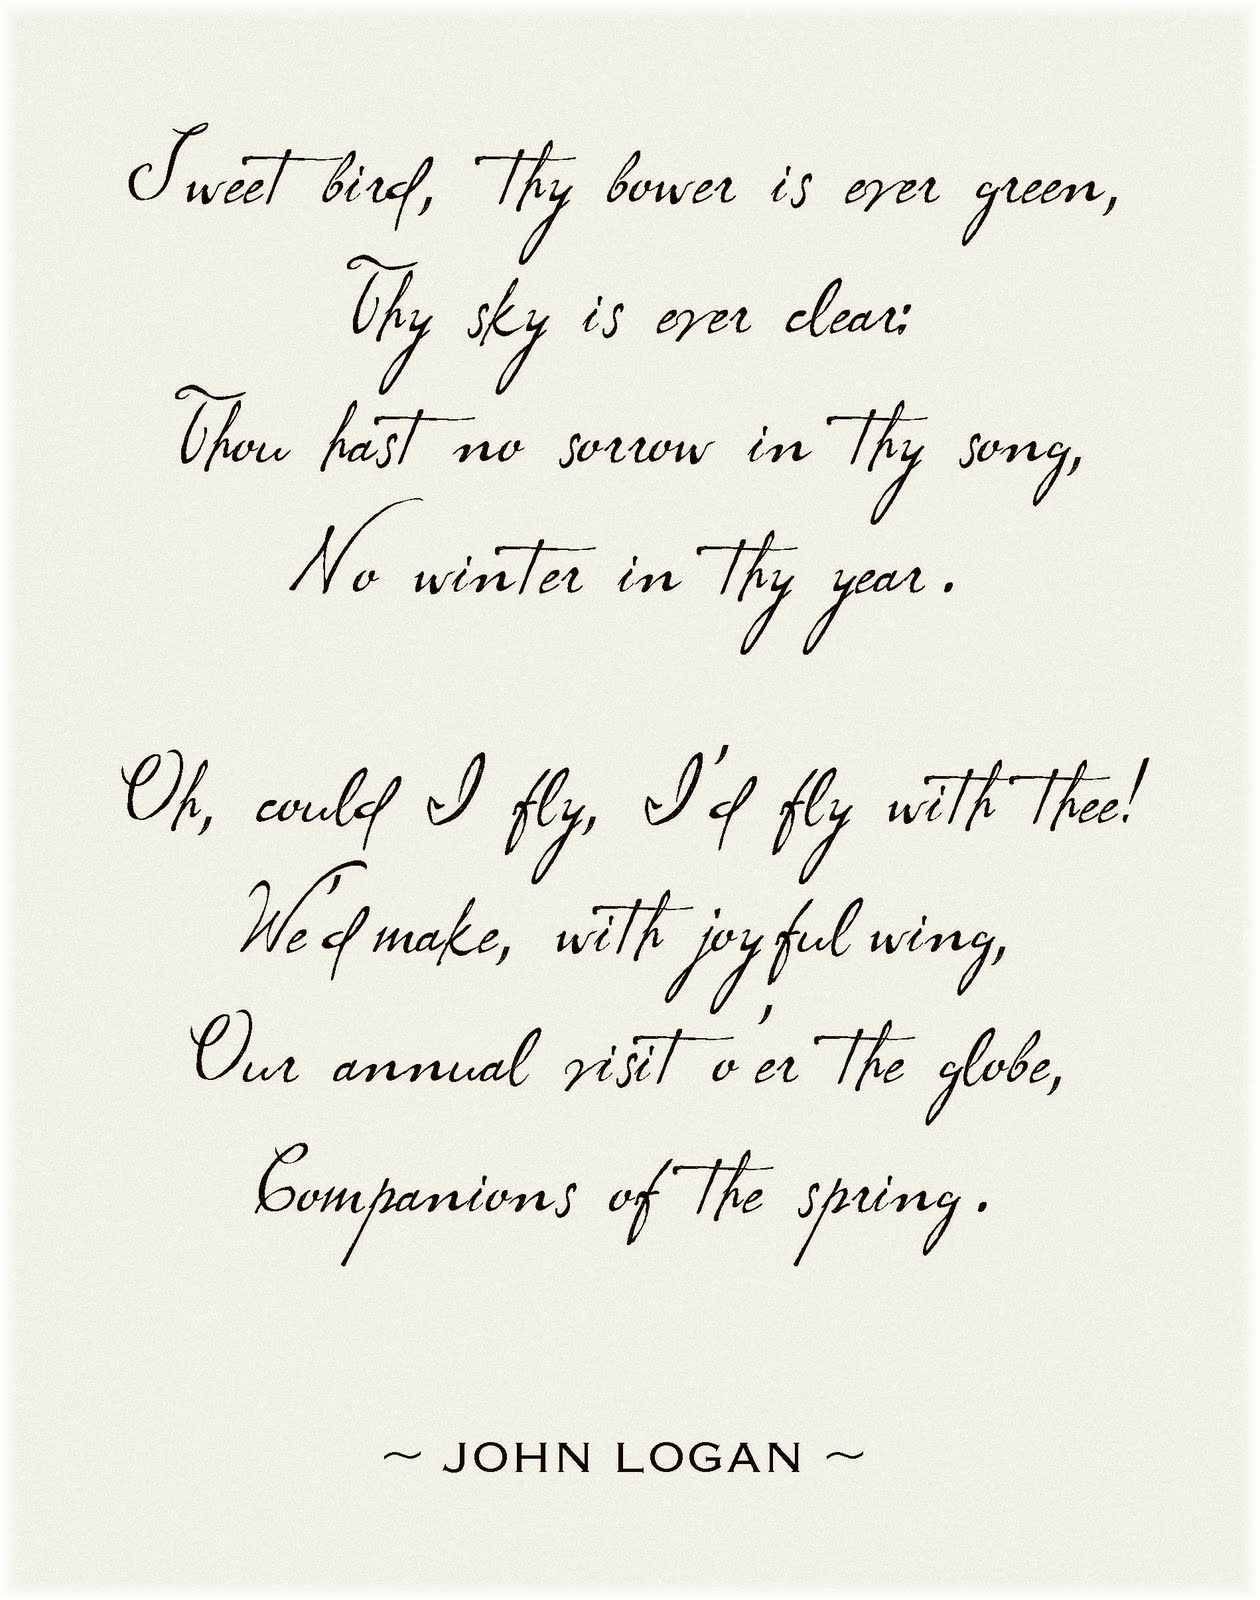 Sweet bird, thy bower is ever green,
Thy sky is ever clear:
Thou hast no sorrow in thy song,
No winter in thy year.
Oh, could I fly, I'd fly with thee!
We'd make, with joyful wing,
Our annual visit o'er the globe,
Companions of the spring.
~ JOHN LOGAN ~